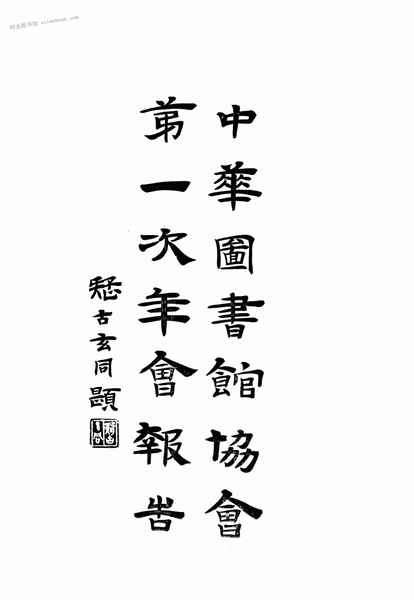 中華圖書館協會
第一次年會報告
疑古玄同題